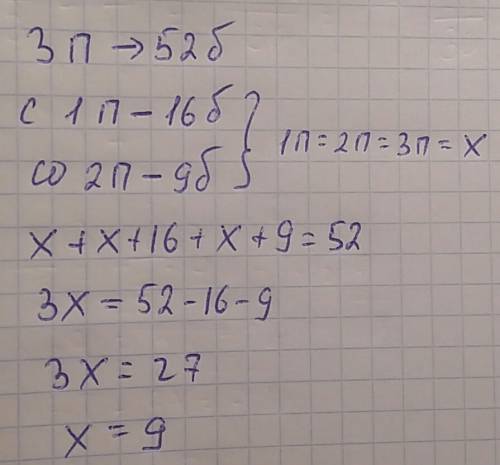 3 п → 52б
с 1п – 16б
со 2п – 9б } 1п = 2п = 3п = x
x + x + 16 + x + 9 = 52
3x = 52 - 16 - 9
3x = 27
x = 9